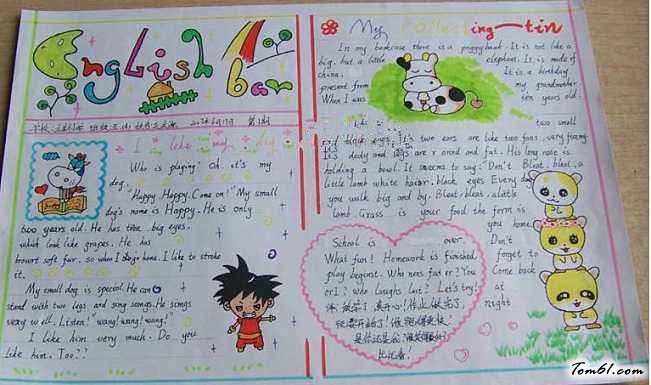 English bar
I like my dog
Who is playing? Oh, it's my
dog.
"Happy Happy. Come on!" My small
dog's name is Happy. He is only
two years old. He has two big eyes,
which look like grapes. He has
soft fur, so when I at home. I like to stroke
it.
My small dog is special. He can
stand with two legs and sing songs. He sings
very well. Listen! "wang! wang! wang!"
I like him very much. Do you
like him, too??
My collecting—tin
In my bookcase there is a piggy bank. It is not like a
big, but a little elephant. It is made of
china. It is a birthday
present from my grandmother
When I was ten years old.
two small
It's two ears are like two fans, very funny.
It's body and legs are round and fat. His long nose is
holding a bowl. It seems to say: "Don't Bleat, bleat, a
little lamb white hair, black eyes Every day
you walk big and by. Bleat, bleat, a little
lamb. Grass is your food the farm is
you home.
Don't
forget to
Come back
at
night
School is over.
What fun! Homework is finished,
play begins. Who runs faster? You
or I? who laughs last? Let's try!
比比看!
Tom61.com